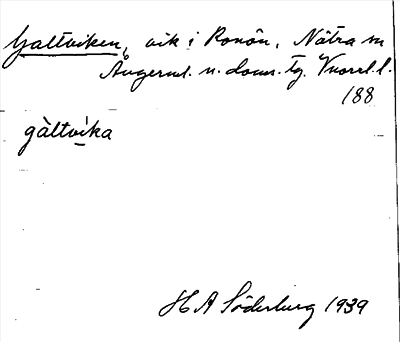 Galtviken, vik i Ronön, Nätra sn
Ångerml. n. doms. tg. l.
188
gàltvíka
H A Söderburg 1939